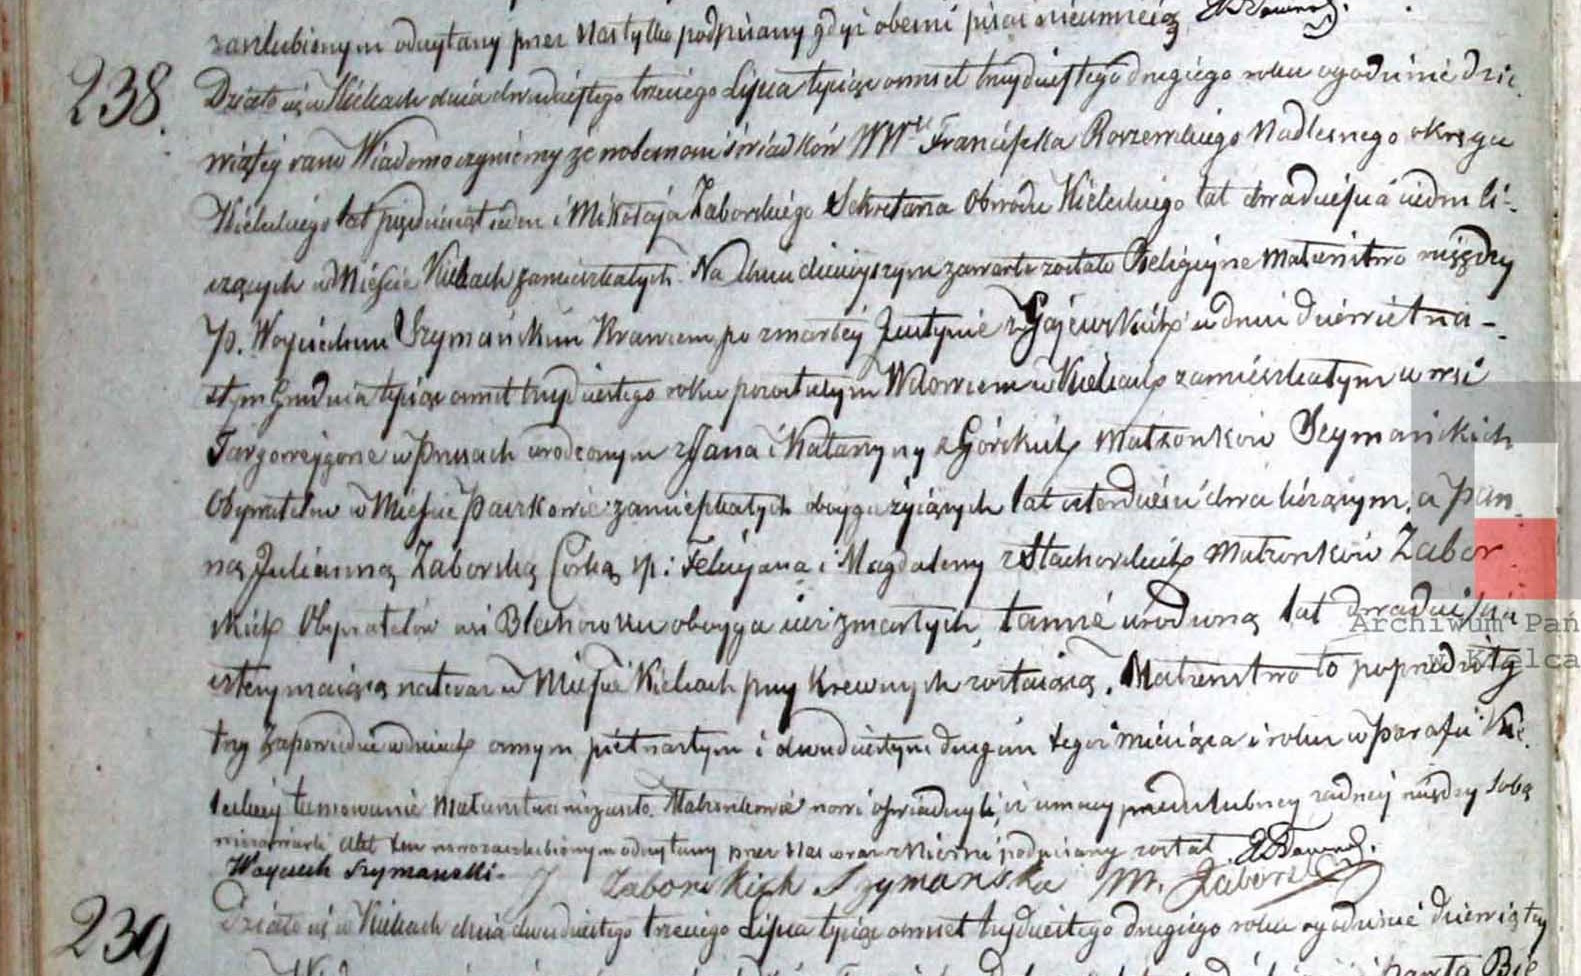 zaślubionym odczytany przez Nas tylko podpisany gdyż obecni pisać nieumieią
238. Działo się w Kielcach dnia dwudziestego trzeciego Lipca tysiąc osmset trzydziestego drugiego roku o godzinie dzie
wiątey rano Wiadomo czyniemy że w obecności świadków WW Franciszka Rorzewskiego Nadleśnego okręgu
Kieleckiego lat pięćdziesiąt ieden i Mikołaja Zaborskiego Sekretarza Obwodu Kieleckiego lat dwadzieścia siedm li-
czących w Mieście Kielcach zamieszkałych. Na dniu dzisieyszym zawarte zostało Religijne Małżeństwo między
P. Woyciechem Szymańskim Krawcem po zmarłey Justynie z Gajewskich w dniu dziewiętna-
stym Grudnia tysiąc osmset trzydziestego roku pozostałym Wdowcem w Kielcach zamieszkałym w wsi
Targowejgone w Prusach urodzonym z Jana i Katarzyny z Górskich Małżonków Szymańskich
Obywatelów w Mieście Paczkowie zamieszkałych oboyga żyiących lat czterdzieści dwa liczącym, a Pan
ną Julianną Zaborską Córką sp: Felicjana i Magdaleny z Stachorskich Małżonków Zabor
skich Obywatelów wsi Blachowsku oboyga iuż zmarłych, tamże urodzoną lat dwadzieścia
cztery maiącą na teraz w Mieście Kielcach przy Krewnych zostaiącą. Małżeństwo to poprzedziły
trzy Zapowiedzie w dniach osmym piętnastym i dwudziestym drugim tegoż miesiąca i roku w Parafii Kie
leckiey tamowanie Małżeństwa niezaszło. Małżonkowie nowi oświadczyli, iż umowy przedślubney żadney między sobą
niezawarli Akt ten nowozaślubionym odczytany przez Nas wraz z Niemi podpisany został.
Woyciech Szymanski. J Zaborskich Szymańska M. Zaborski
239 Działo się w Kielcach dnia dwudziestego trzeciego Lipca tysiąc osmset trzydziestego drugiego roku o godzinie dziewiątey
Archiwum Pań
w Kielca